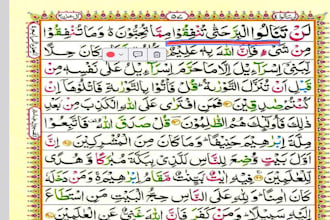 لَنْ تَنَالُوا الْبِرَّ حَتّٰى تُنْفِقُوْا مِمَّا تُحِبُّوْنَ وَمَا تُنْفِقُوْا
مِنْ شَیْءٍ فَاِنَّ اللّٰهَ بِهٖ عَلِیْمٌ كَانَ حِلًّا
لِّبَنِیْٓ اِسْرَآءِیْلَ اِلَّا مَا حَرَّمَ اِسْرَآءِیْلُ عَلٰى نَفْسِهٖ مِنْ
قَبْلِ اَنْ تُنَزَّلَ التَّوْرٰىةُ قُلْ فَاْتُوْا بِالتَّوْرٰىةِ فَاتْلُوْهَآ اِنْ
كُنْتُمْ صٰدِقِیْنَ فَمَنِ افْتَرٰى عَلَى اللّٰهِ الْكَذِبَ مِنْۢ بَعْدِ
ذٰلِكَ فَاُولٰٓئِكَ هُمُ الظّٰلِمُوْنَ قُلْ صَدَقَ اللّٰهُ فَاتَّبِعُوْا
مِلَّةَ اِبْرٰهِیْمَ حَنِیْفًا وَمَا كَانَ مِنَ الْمُشْرِكِیْنَ اِنَّ
اَوَّلَ بَیْتٍ وُّضِعَ لِلنَّاسِ لَلَّذِیْ بِبَكَّةَ مُبٰرَكًا وَّهُدًى
لِّلْعٰلَمِیْنَ فِیْهِ اٰیٰتٌۢ بَیِّنٰتٌ مَّقَامُ اِبْرٰهِیْمَ وَمَنْ دَخَلَهٗ
كَانَ اٰمِنًا وَلِلّٰهِ عَلَى النَّاسِ حِجُّ الْبَیْتِ مَنِ اسْتَطَاعَ
اِلَیْهِ سَبِیْلًا وَمَنْ كَفَرَ فَاِنَّ اللّٰهَ غَنِیٌّ عَنِ الْعٰلَمِیْنَ